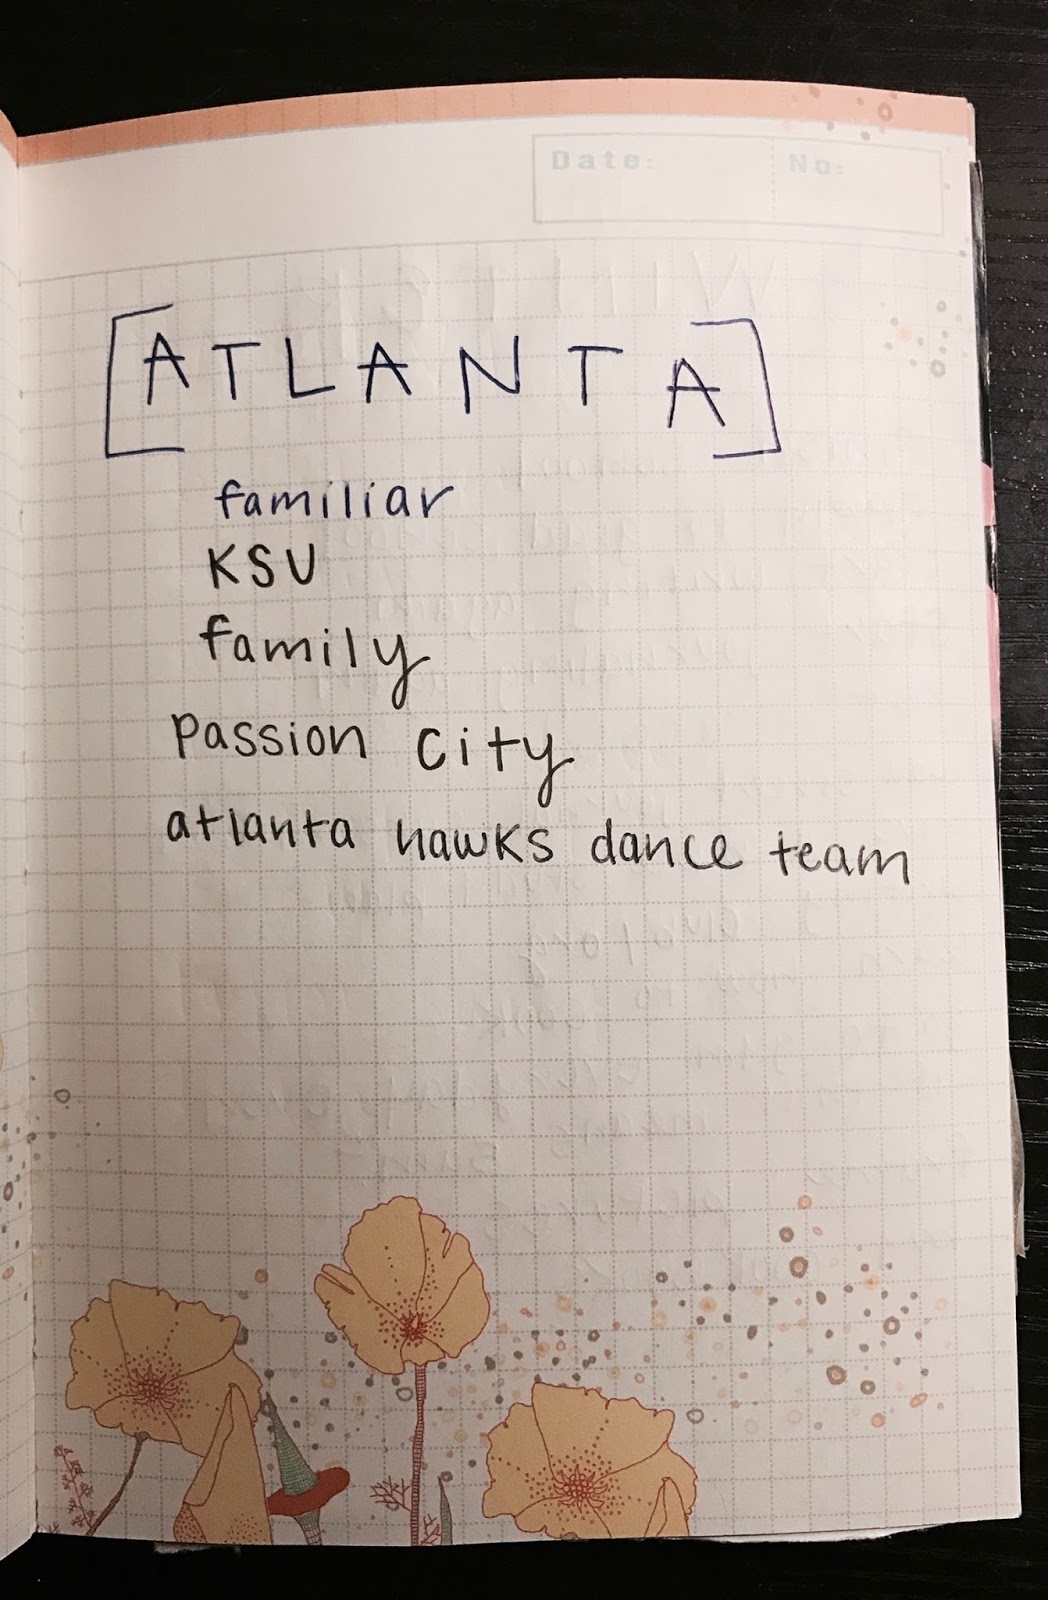 Date: No:
[ATLANTA]
familiar
KSU
family
passion city
atlanta hawks dance team